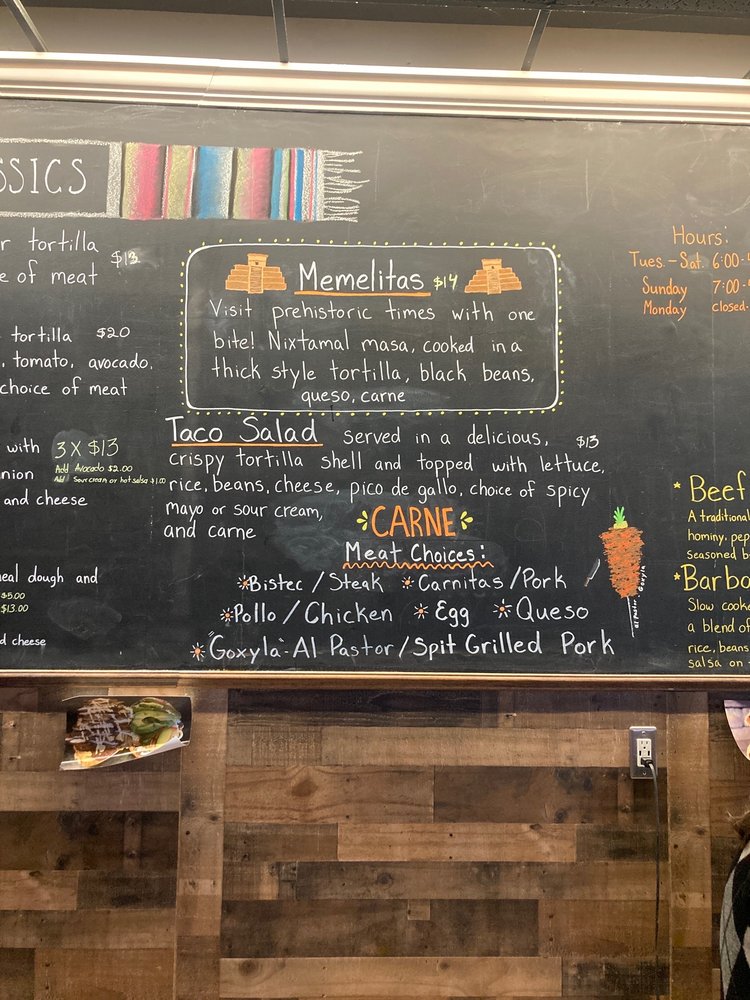 SSICS
r tortilla
e of meat $13
tortilla $20
, tomato, avocado,
choice of meat
with 3 X $13
Add Avocado $2.00
nion Add Sour cream or hot salsa $1.00
and cheese
eal dough and
$5.00
$13.00
d cheese
Memelitas $14
Visit prehistoric times with one
bite! Nixtamal masa, cooked in a
thick style tortilla, black beans,
queso, carne
Taco Salad served in a delicious, $13
crispy tortilla shell and topped with lettuce,
rice, beans, cheese, pico de gallo, choice of spicy
mayo or sour cream,
and carne
CARNE
Meat Choices:
Bistec / Steak Carnitas / Pork
Pollo / Chicken Egg Queso
"Goxyla" - Al Pastor / Spit Grilled Pork
Al Pastor - Goxyla
Hours:
Tues. - Sat. 6:00-
Sunday 7:00-
Monday closed.
* Beef
A traditional
hominy, pep
seasoned b
* Barbo
Slow cook
a blend of
rice, beans
salsa on